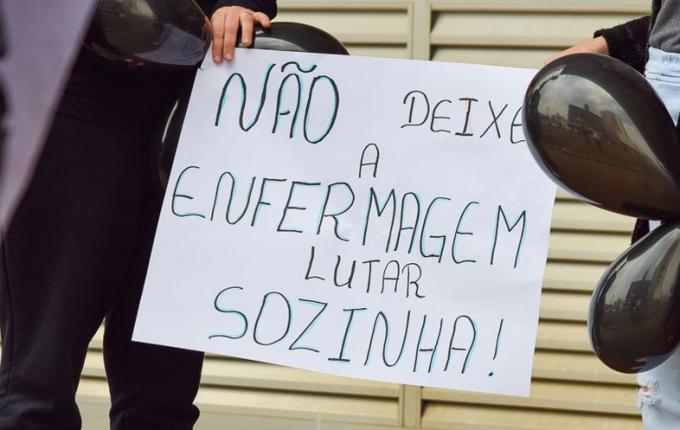 NÃO DEIXE
A
ENFERMAGEM
LUTAR
SOZINHA!